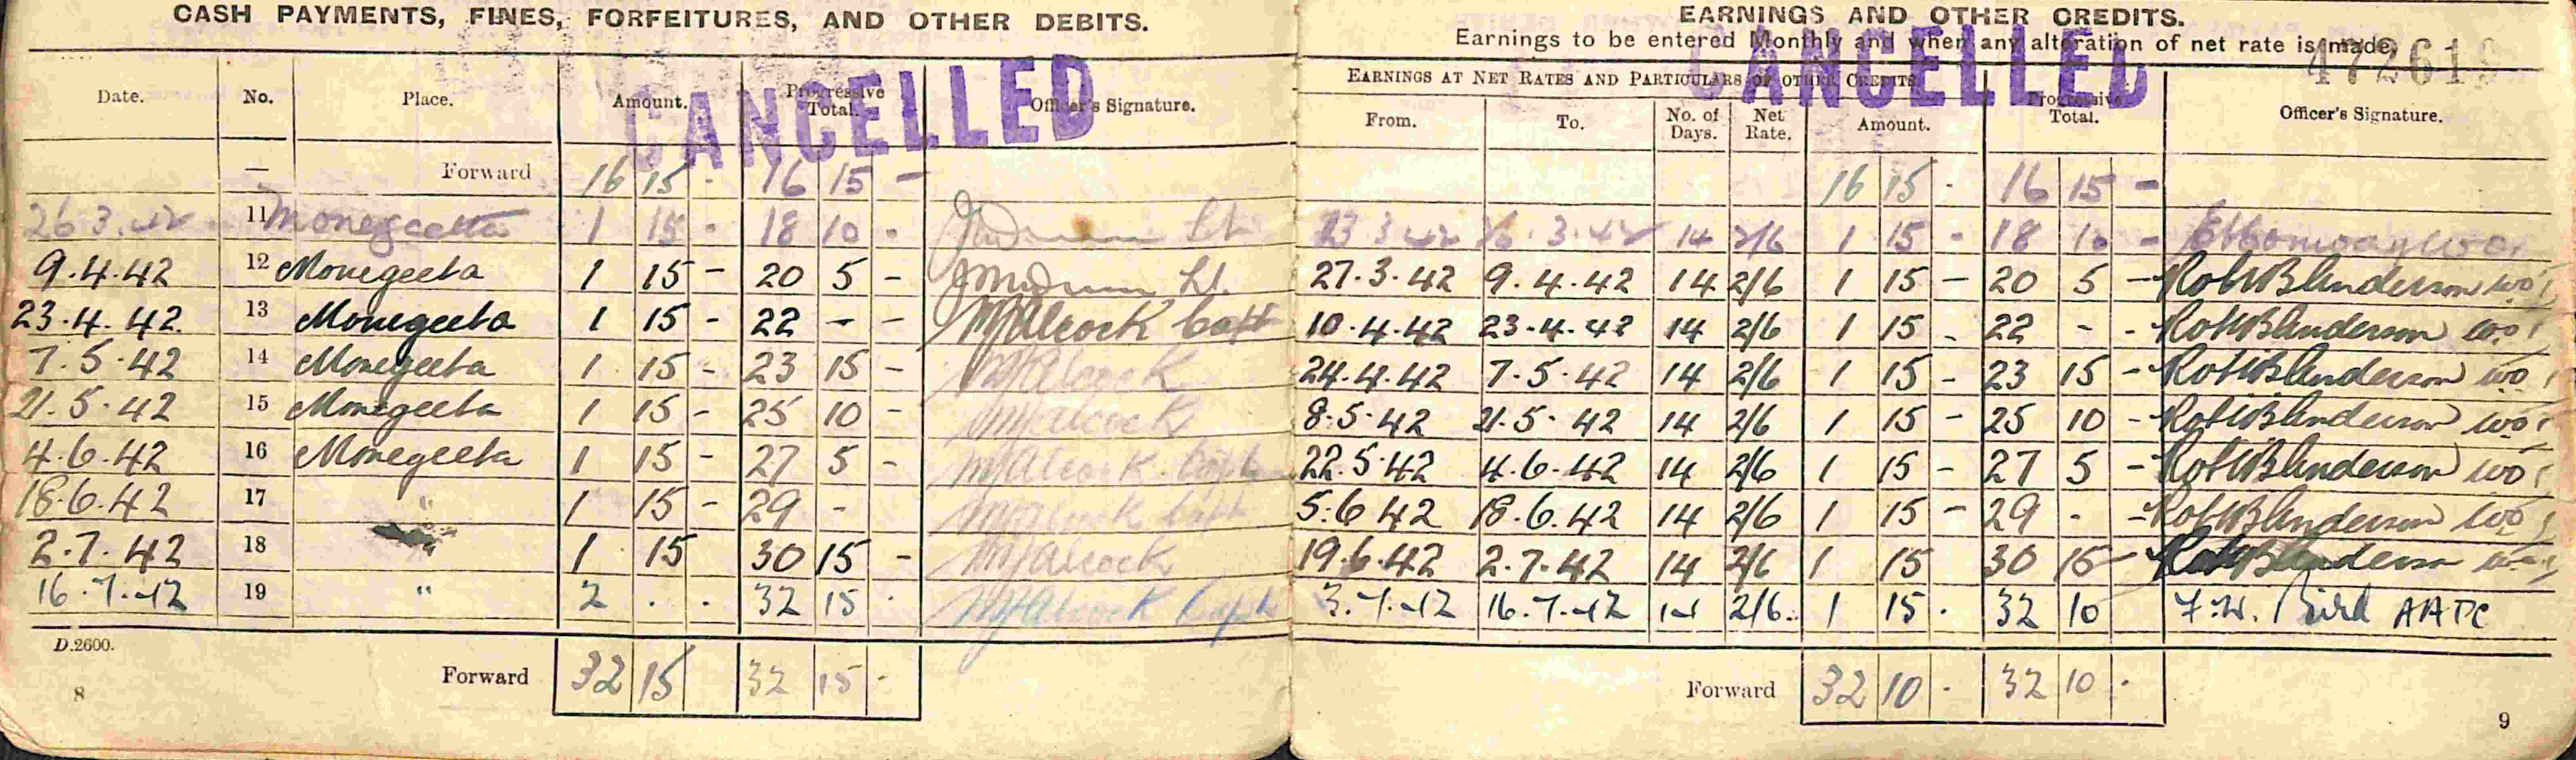 CASH PAYMENTS, FINES, FORFEITURES, AND OTHER DEBITS.
Date. No. Place. Amount. Progressive Total. Officer's Signature.
CANCELLED
— Forward 16 15 - 16 15 -
26.3.42 11 Monegeetta 1 15 - 18 10 - Lt
9.4.42 12 Monegeeta 1 15 - 20 5 - Lt.
23.4.42. 13 Monegeeta 1 15 - 22 - - Malcock Capt
7.5.42 14 Monegeeta 1 15 - 23 15 - Malcock
21.5.42 15 Monegeeta 1 15 - 25 10 - Malcock
4.6.42 16 Monegeeta 1 15 - 27 5 - Malcock Capt
18.6.42 17 " 1 15 - 29 - Malcock Capt
2.7.42 18 1 15 30 15 - Malcock
16.7.42 19 " 2 . . 32 15 . Malcock Capt
D.2600.
Forward 32 15 32 15 -
8
EARNINGS AND OTHER CREDITS.
Earnings to be entered Monthly and when any alteration of net rate is made.
472619
CANCELLED
EARNINGS AT NET RATES AND PARTICULARS OF OTHER CREDITS.
From. To. No. of Days. Net Rate. Amount. Progressive Total. Officer's Signature.
16 15 . 16 15 -
13 3 42 26.3.42 14 2/6 1 15 - 18 10 -
27.3.42 9.4.42 14 2/6 1 15 - 20 5 - RobtBAnderson WO1
10.4.42 23.4.42 14 2/6 1 15 - 22 - - RobtBAnderson WO1
24.4.42 7.5.42 14 2/6 1 15 - 23 15 - RobtBAnderson WO1
8.5.42 21.5.42 14 2/6 1 15 - 25 10 - RobtBAnderson WO1
22.5.42 4.6.42 14 2/6 1 15 - 27 5 - RobtBAnderson WO1
5.6 42 18.6.42 14 2/6 1 15 - 29 . - RobtBAnderson WO1
19.6.42 2.7.42 14 2/6 1 15 30 15 - RobtBAnderson
3.7.42 16.7.42 14 2/6. 1 15 . 32 10 F.W. Bird AAPC
Forward 32 10 . 32 10 .
9